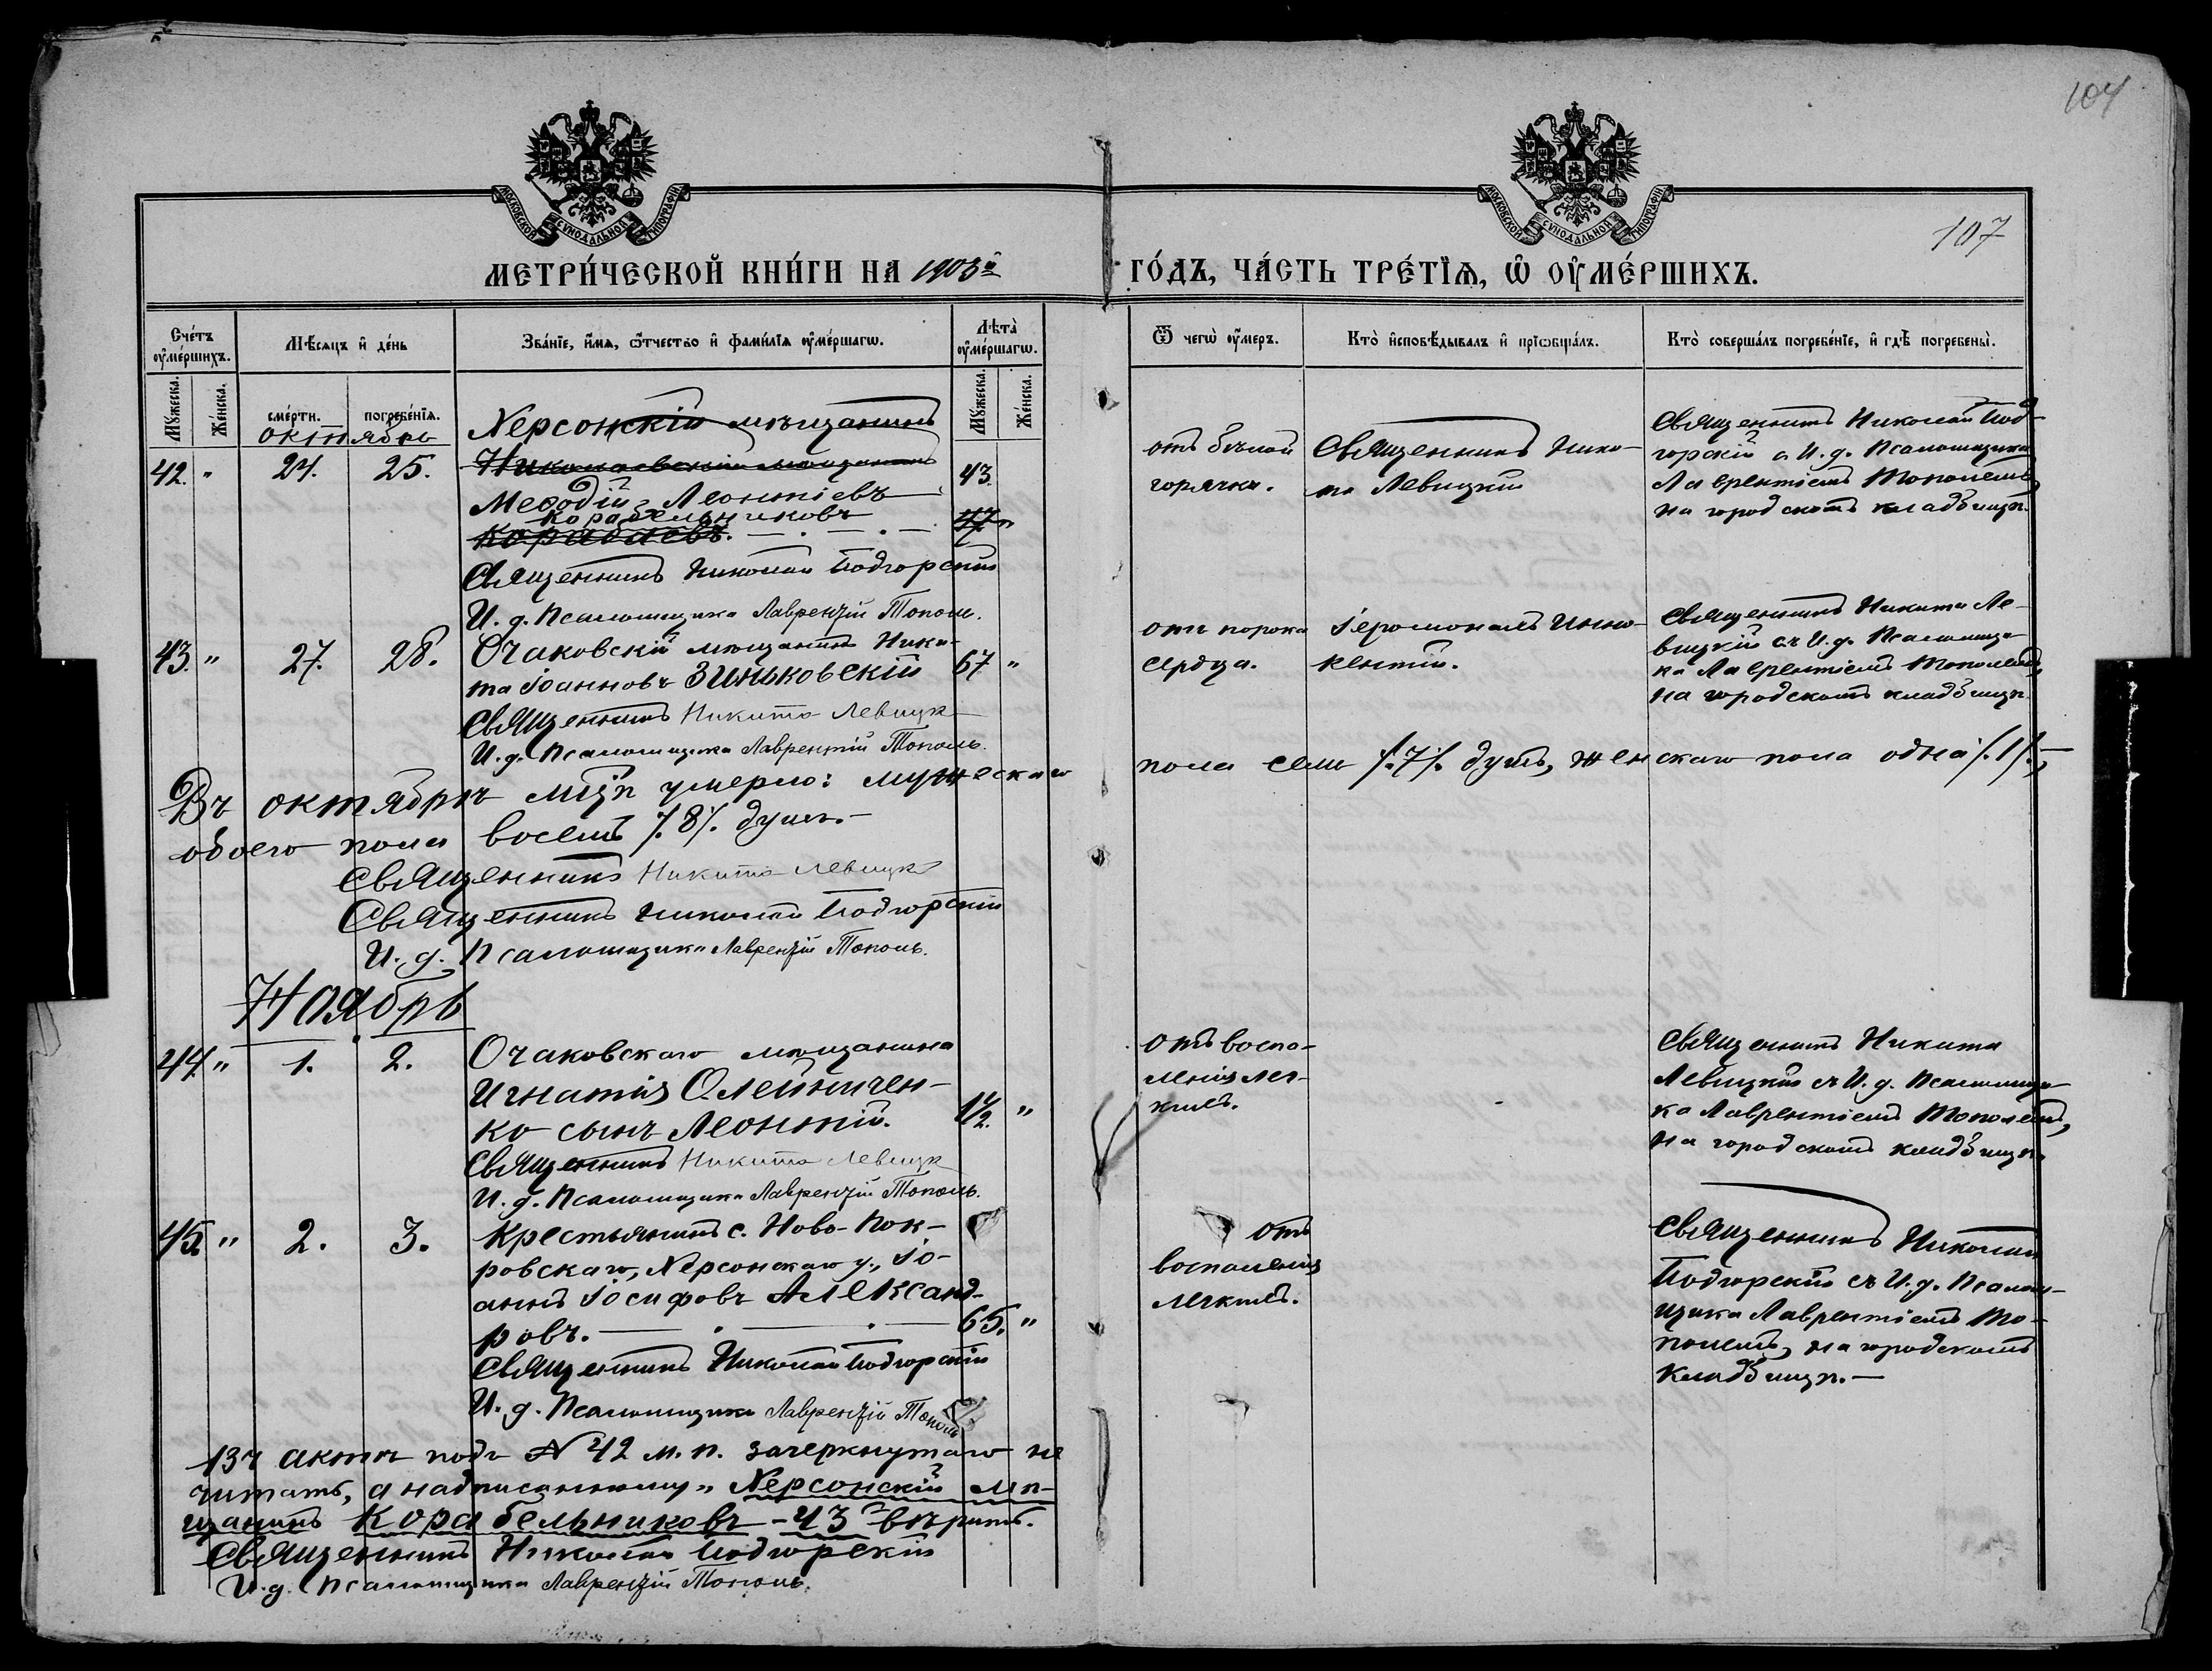 104
107
МОСКОВСКОЙ СУНОДАЛЬНОЙ ТИПОГРАФІИ
МОСКОВСКОЙ СУНОДАЛЬНОЙ ТИПОГРАФІИ
МЕТРИ́ЧЕСКОЙ КНИ́ГИ НА 1903й
ГО́ДЪ, ЧА́СТЬ ТРЕ́ТЇѦ, Ѡ҆ ОУ҆МЕ́РШИХЪ.
Сче́тъ оу҆ме́ршихъ.
Мѣ́сяцъ и҆ де́нь
Зва́нїе, и҆́мѧ, ѻ҆́тчество и҆ фами́лїѧ оу҆ме́ршагѡ.
Лѣта̀ оу҆ме́ршагѡ.
Ѿ чегѡ̀ оу҆́меръ.
Кто̀ и҆сповѣ́дывалъ и҆ прїѡбща́лъ.
Кто̀ соверша́лъ погребе́нїе, и҆ гдѣ̀ погребены̀.
Мꙋ́жеска.
Же́нска.
сме́рти.
погребе́нїѧ.
Мꙋ́жеска.
Же́нска.
октябрь
Херсонскій мѣщанинъ
42. " 24. 25. Николаевскій мѣщанинъ 43.
Меѳодій Леонтіевъ
Корабельниковъ
Корабаевъ. — . — . — 47 "
Священникъ Николай Подгорскій
И. д. Псаломщика Лаврентій Тополь.
отъ бѣлой
горячки.
Священникъ Ники-
та Левицкій
Священникъ Николай Под-
горскій с И. д. Псаломщика
Лаврентіемъ Тополемъ,
на городскомъ кладбищѣ.
43. " 27. 28. Очаковскій мѣщанинъ Ники-
та Іоанновъ Зиньковскій 67 "
Священникъ Никита Левицк
И. д. Псаломщика Лаврентій Тополь.
отъ порока
сердца.
Іеромонахъ Инно-
кентій.
Священникъ Никита Ле-
вицкій съ И. д. Псаломщи-
ка Лаврентіемъ Тополемъ,
на городскомъ кладбищѣ.
Въ октябрѣ мцѣ умерло: мужескаго
пола семь /.7/. душъ, женскаго пола одна /.1/.,—
обоего пола восемь /.8/. душъ.—
Священникъ Никита Левицк
Священникъ Николай Подгорскій
И. д. Псаломщика Лаврентій Тополь.
Ноябрь
44. " 1. 2. Очаковскаго мѣщанина
Игнатія Олейничен-
ко сынъ Леонтій. 1½. "
Священникъ Никита Левицк
И. д. Псаломщика Лаврентій Тополь.
Отъ воспа-
ленія лег-
кихъ.
-
Священникъ Никита
Левицкій съ И. д. Псаломщи-
ка Лаврентіемъ Тополемъ,
на городскомъ кладбищѣ.
45. " 2. 3. Крестьянинъ с. Ново-Пок-
ровскаго, Херсонскаго у., Іо-
аннъ Іосифовъ Александ-
ровъ. — . — . — 65. "
Священникъ Николай Подгорскій
И. д. Псаломщика Лаврентій Тополь
отъ
воспаленія
легкихъ.
Священникъ Николай
Подгорскій съ И. д. Псалом-
щика Лаврентіемъ То-
полемъ, на городскомъ
кладбищѣ.—
Въ актѣ подъ № 42 м. п. зачеркнутаго не
читать, а надписанному „Херсонскій мѣ-
щанинъ Корабельниковъ - 43" вѣрить.
Священникъ Николай Подгорскій
И. д. Псаломщика Лаврентій Тополь.